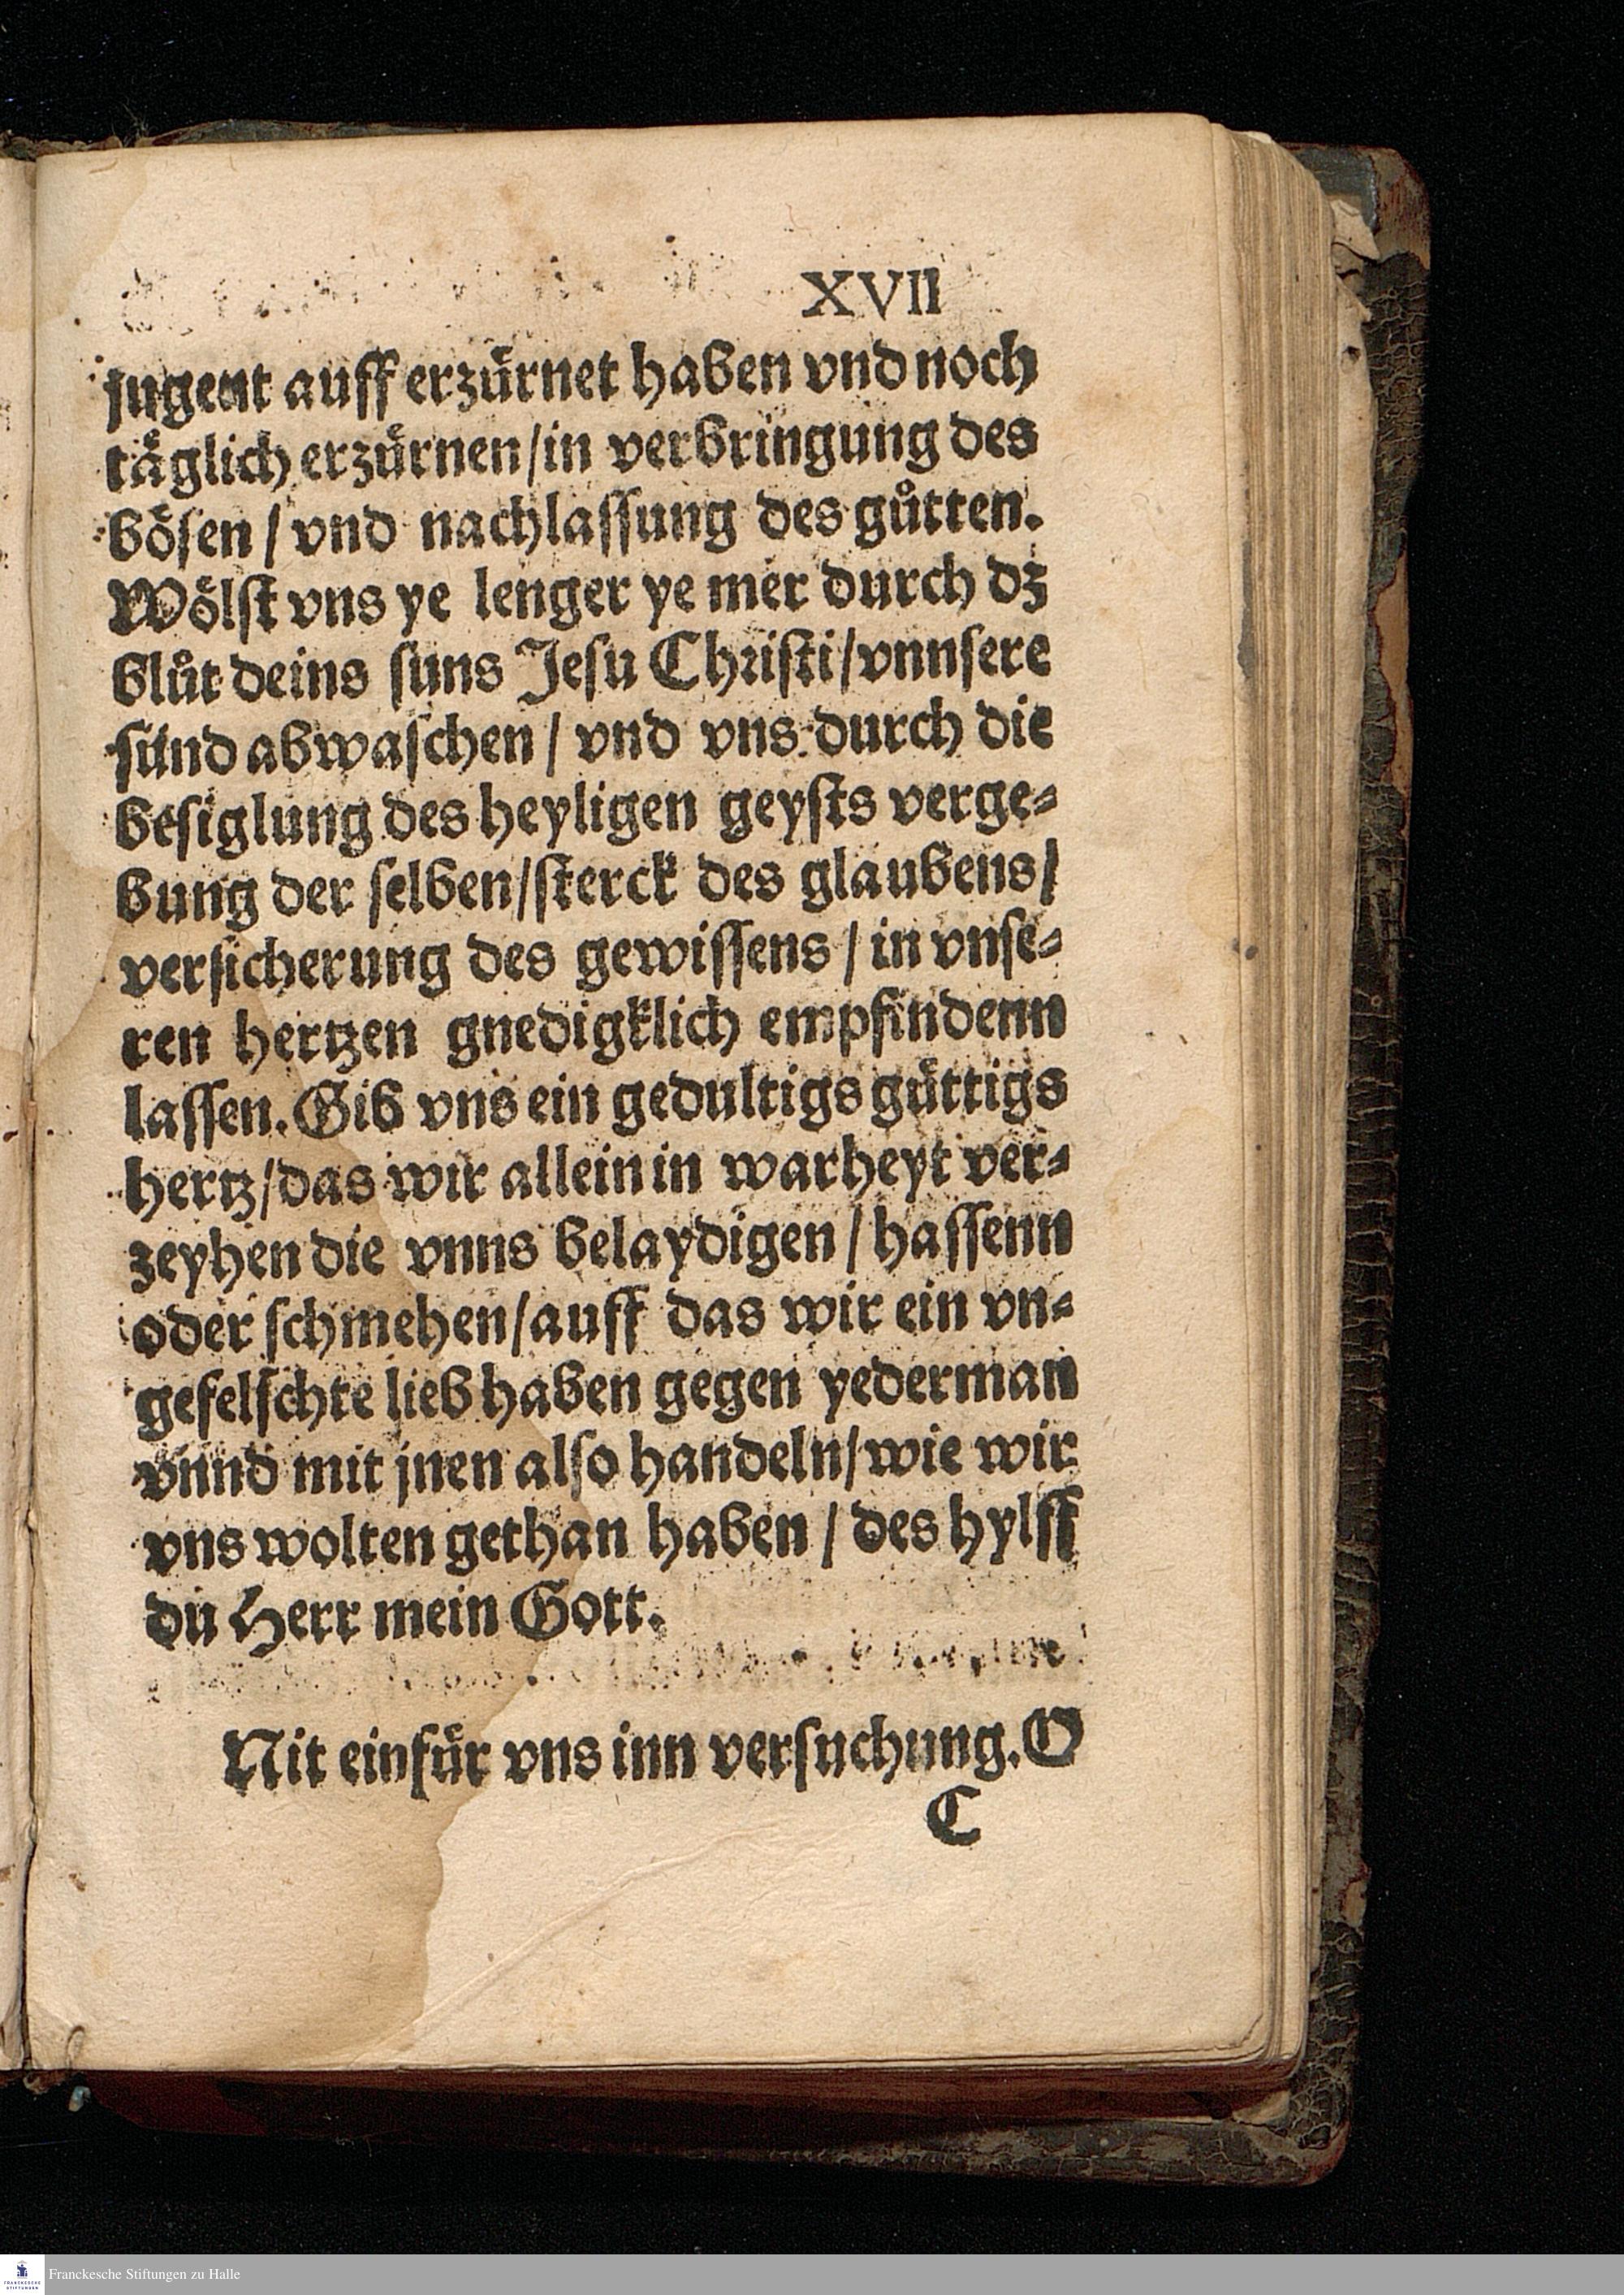 XVII
jugent auff erzürnet haben vnd noch
täglich erzürnen/in verbringung des
bösen / vnd nachlassung des gůtten.
Wölst vns ye lenger ye mer durch dz
blůt deins suns Jesu Christi/vnnsere
sünd abwaschen / vnd vns durch die
besiglung des heyligen geysts verge⸗
bung der selben/sterck des glaubens/
versicherung des gewissens / in vnse⸗
ren hertzen gnedigklich empfindenn
lassen. Gib vns ein gedultigs güttigs
hertz/das wir allein in warheyt ver⸗
zeyhen die vnns belaydigen / hassenn
oder schmehen/auff das wir ein vn⸗
gefelschte lieb haben gegen yederman
vnnd mit jnen also handeln/wie wir
vns wolten gethan haben / des hylff
du Herr mein Gott.
Nit einfür vns inn versuchung. O
C
Franckesche Stiftungen zu Halle
FRANCKESCHE
STIFTUNGEN